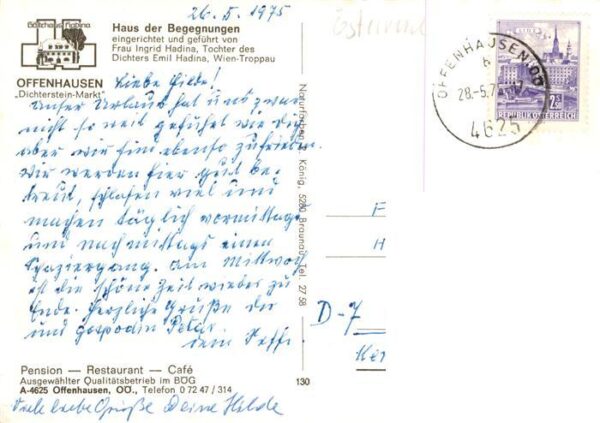 26.5.1975
Gasthaus Hadina
Haus der Begegnungen
eingerichtet und geführt von
Frau Ingrid Hadina, Tochter des
Dichters Emil Hadina, Wien-Troppau
OFFENHAUSEN
„Dichterstein-Markt"
Liebe Hilde!
Unser Urlaub hat uns zwar
nicht so weit geführt wie Dich
aber wir sind ebenso zufrieden.
Wir werden hier gut be-
treut, schlafen viel und
machen täglich vormittags
und nachmittags einen
Spaziergang. Am Mittwoch
ist die schöne Zeit wieder zu
Ende. Herzliche Grüße Dir
und
Pension — Restaurant — Café
Ausgewählter Qualitätsbetrieb im BÖG
A-4625 Offenhausen, OÖ., Telefon 0 72 47 / 314
Viele liebe Grüße Deine Hilde
Naturfarben J. König, 5280 Braunau, Tel. 27 58
130
OFFENHAUSEN, OÖ
28.-5.7
4625
2.50
REPUBLIK ÖSTERREICH
F
H
D-7